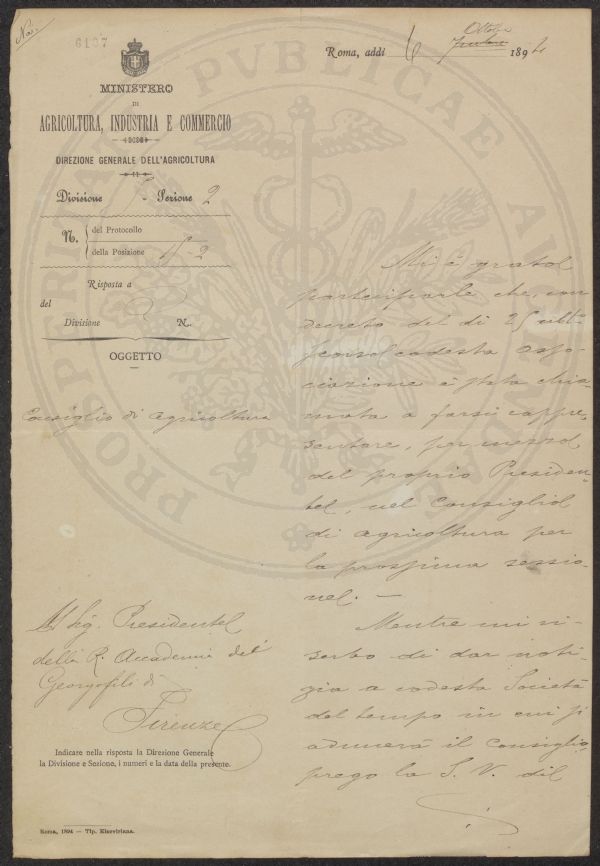 No.
6197
MINISTERO
DI
AGRICOLTURA, INDUSTRIA E COMMERCIO
DIREZIONE GENERALE DELL'AGRICOLTURA
Divisione 1ª Sezione 2
N. del Protocollo
della Posizione 15-2
Risposta a
del
Divisione N.
OGGETTO
Consiglio di agricoltura
Al Sig. Presidente
della R. Accademia dei
Georgofili di
Firenze
Indicare nella risposta la Direzione Generale
la Divisione e Sezione, i numeri e la data della presente.
Roma, 1894 — Tip. Elzeviriana.
Roma, addì 6 Ottobre 1894
Mi è grato
parteciparle che, con
decreto del dì 25 ult.
scorso codesta asso-
ciazione è stata chia-
mata a farsi rappre-
sentare, per mezzo
del proprio Presiden-
te, nel Consiglio
di agricoltura per
la prossima sessio-
ne. —
Mentre mi ri-
serbo di dar noti-
zia a codesta Società
del tempo in cui si
adunerà il Consiglio,
prego la S. V. di
PROSPERITATI PVBLICAE AVGENDAE